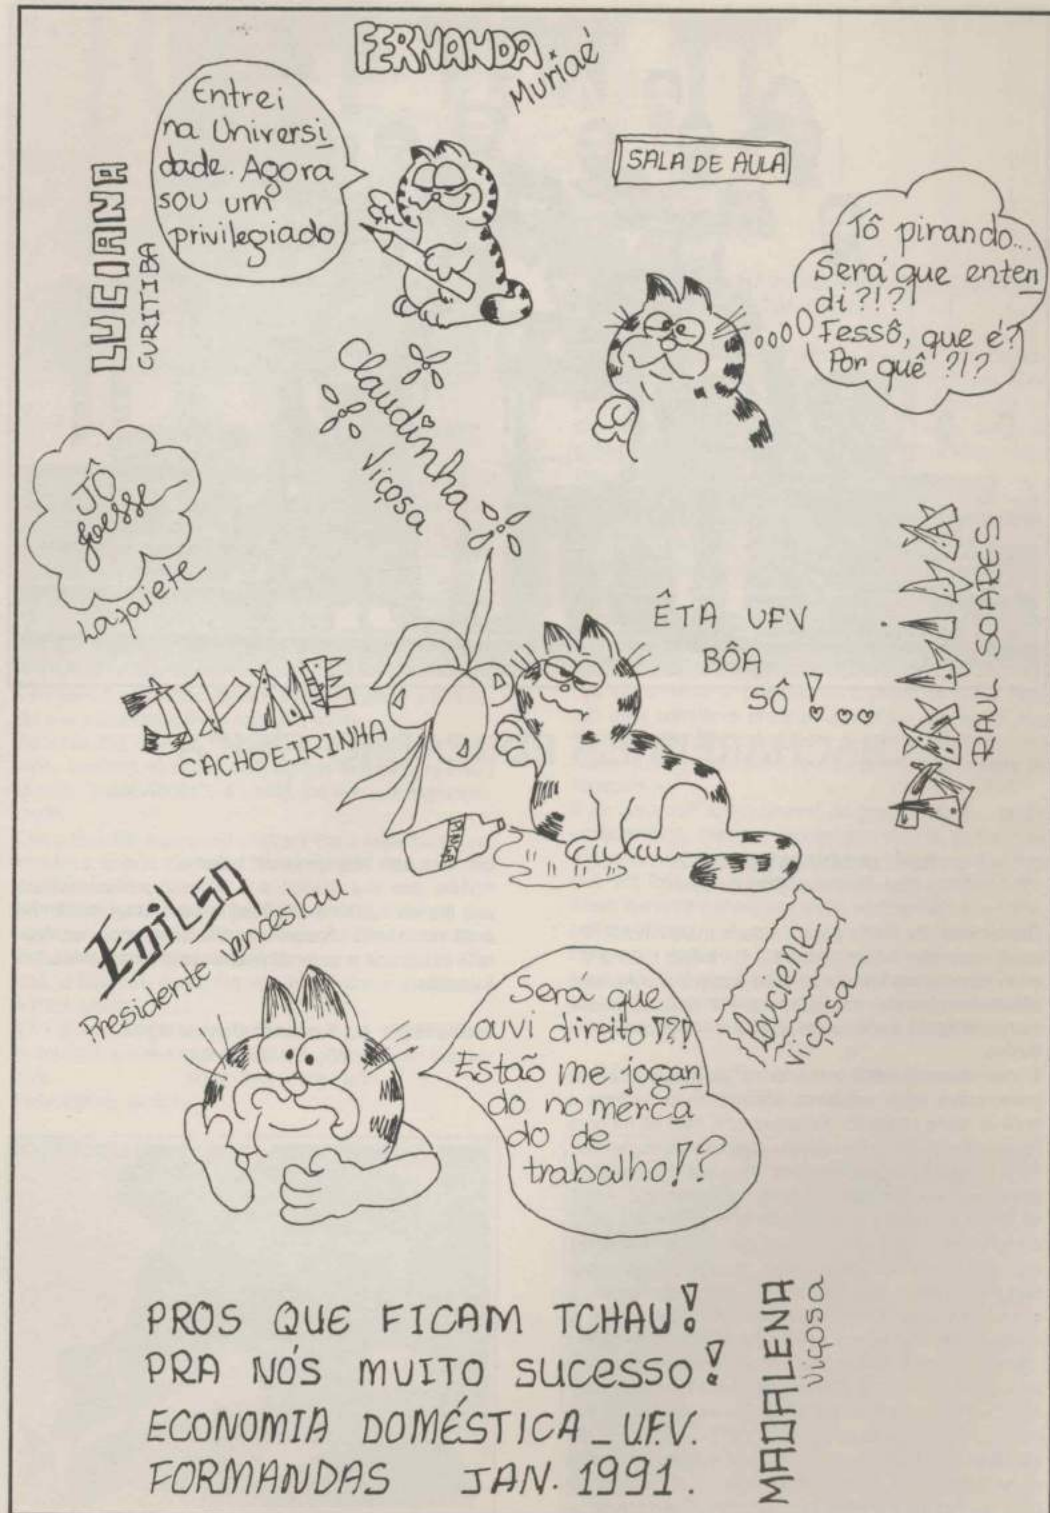 FERNANDA
Muriaé
Entrei
na Universi
dade. Agora
sou um
privilegiado
LUCIANA
CURITIBA
SALA DE AULA
Tô pirando...
Será que enten
di?!?!
Fessô, que é?
Por quê?!?
Claudinha
Viçosa
JÔ
Joesse
Lafaiete
ÊTA UFV
BÔA
SÔ!...
RAUL SOARES
CACHOEIRINHA
PINGA
EdiLSA
Presidente Venceslau
Luciene
Viçosa
Será que
ouvi direito!?!
Estão me jogan
do no merca
do de
trabalho!?
PROS QUE FICAM TCHAU!
PRA NÓS MUITO SUCESSO!
ECONOMIA DOMÉSTICA_U.F.V.
FORMANDAS JAN. 1991.
MADALENA
Viçosa